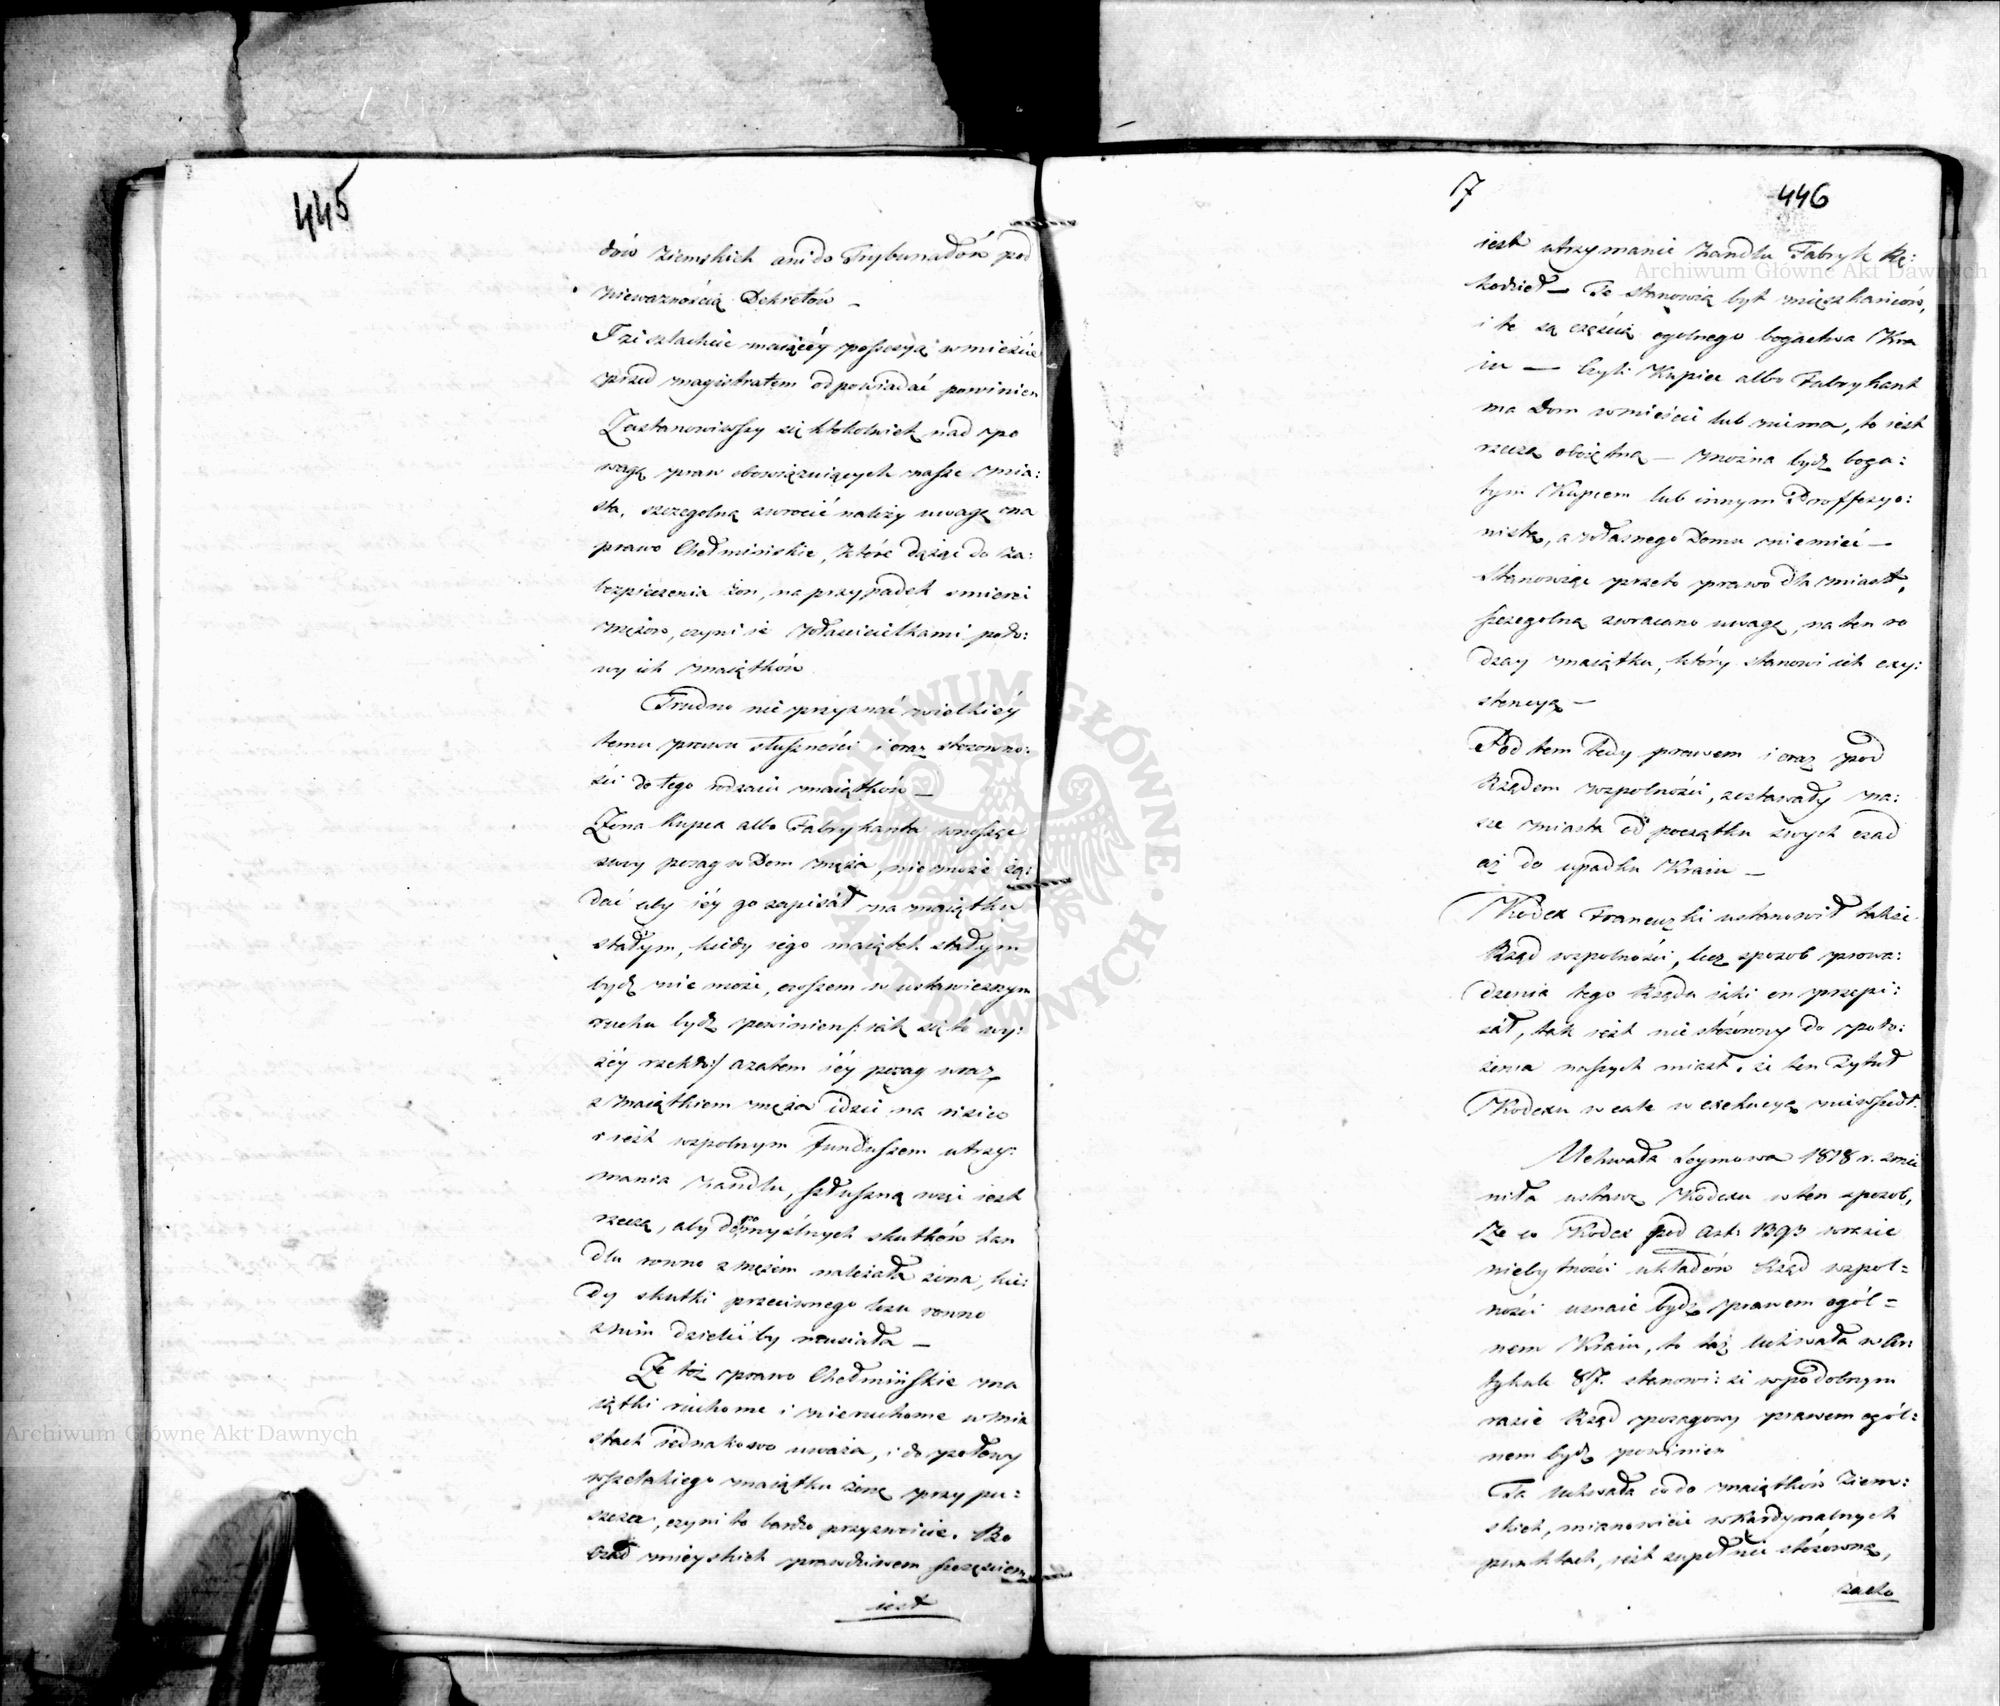 445
dów Ziemskich ani do Trybunałów pod
nieważnością Dekretów —
I zi szlachcic maiący possesyą w mieście
przed magistratem odpowiadać powinien
Zastanowiwszy się ktokolwiek nad po
wagą praw obowiązuiących nasze mia:
sta, szczegolną zwrocić należy uwagę na
prawo Chełmińskie, które dążąc do za:
bezpieczenia żon, na przypadek smierci
mężow, czyni ie właścicielkami poło:
wy ich maiątków
Trudno nie przyznać wielkiéy
temu prawu słuszności i oraz stosowno:
ści do tego rodzaiu maiątków —
Żona Kupca albo Fabrykanta wnosząc
swoy posag w Dom męża, nie może żą:
dać aby iéy go zapisał na maiątku
stałym, kiedy iego maiątek stałym
bydź nie może, owszem w ustawicznym
ruchu bydź powinien /: iak się to wy:
żéy rzekło :/ azatem iéy posag wraz
z maiątkiem męża idzie na risico
i iest wspolnym funduszem utrzy:
mania handlu, słuszną więc iest
rzeczą, aby do pomyślnych skutków han
dlu rowno z mężem należała żona, kie:
dy skutki przeciwnego losu rowno
z nim dzielić by musiała —
Że też prawo Chełmińskie ma
iątki ruchome i nieruchome w mia
stach iednakowo uważa, i do połowy
wszelakiego maiątku żonę przypu:
szcza, czyni to bardzo przyzwoicie. Bo
osad mieyskich prawdziwem szczęściem
iest
7
446
iest utrzymanie handlu Fabryk Rę:
kodzieł — Te stanowią byt mieszkańców,
i te są częścią ogolnego bogactwa Kra
iu — Czyli Kupiec albo Fabrykant
ma Dom w mieście lub niema, to iest
rzeczą oboiętną — można bydź boga:
tym Kupcem lub innym Proffessyo:
nistą, a własnego Domu nie mieć —
Stanowiąc przeto prawo dla miast,
szczegolną zwracano uwagę, na ten ro
dzay maiątku, który stanowi ich exy:
stencyą —
Pod tem tedy prawem i oraz pod
Rządem wspolności, zostawały na:
sze miasta od początku swych osad
aż do upadku Kraiu —
Kodex Francuzki ustanowił także
Rząd wspolności, lecz sposob prowa:
dzenia tego Rządu iaki on przepi:
sał, tak iest nie stósowny do poło:
żenia naszych miast, że ten Tytuł
Kodexu w cale w exekucyą nie wszedł.
Uchwała Seymowa 1818 r. zmie
niła ustawę Kodexu w ten sposob,
Że co Kodex pod Art: 1393 w razie
niebytności układów Rząd wspol=
ności uznaie bydź prawem ogól=
nem Kraiu, to taż uchwała w Ar:
tykule 87. stanowi: że w podobnym
razie Rząd posagowy prawem ogól:
nem bydź powinien
Ta uchwała co do maiątków Ziem:
skich, mianowicie w kardynalnych
punktach, iest zupełnie stósowną,
zaco
Archiwum Główne Akt Dawnych
Archiwum Główne Akt Dawnych
ARCHIWUM GŁÓWNE AKT DAWNYCH